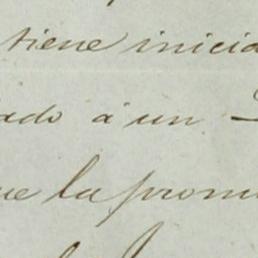 tiene inicia
ado á un
ue la promo